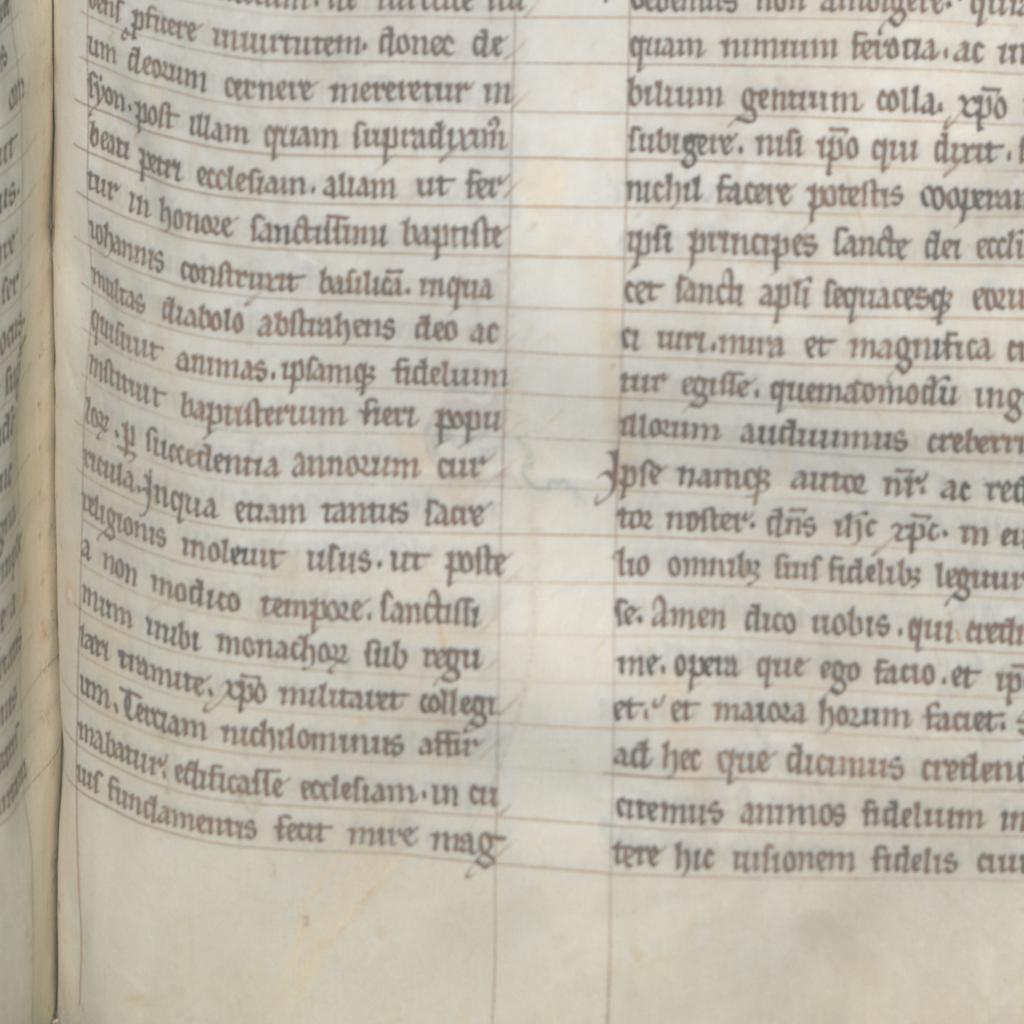 bens ꝓficere in uirtutem. donec de
um deorum cernere mereretur in
syon. post illam quam supradixim᷒
beati petri ecclesiam. aliam ut fer
tur in honore sanctissimi baptiste
iohannis construxit basilicā. in qua
multas diabolo abstrahens deo ac
quisiuit animas. ipsamqꝫ fidelium
instituit baptisterium fieri popu
loꝝ. ꝑ succedentia annorum cur
ricula. In qua etiam tantus sacre
religionis inoleuit usus. ut poste
a non modico tempore. sanctissi
mum inibi monachoꝝ sub regu
lari tramite. xp̄o militaret collegi
um. Terciam nichilominus affir
mabatur. edificasse ecclesiam. in cu
ius fundamentis fecit mire mag
debemus non ambigere. quia
quam nimium ferocia. ac in
bilium gentium colla. xp̄o
subigere. nisi ip̄o qui dixit.
nichil facere potestis cooperan
ipsi principes sancte dei eccli
cet sancti apl̄i sequacesqꝫ eoru
ci uiri. mira et magnifica
tur egisse. quemadmodū ing
illorum audiuimus creberri
Ipse namqꝫ autor nr̄. ac red
tor noster. dn̄s ih̄c xp̄c. in
lio omnibꝫ suis fidelibꝫ legitur
se. Amen dico uobis. qui credi
me. opera que ego facio. et ip̄
et. et maiora horum faciet.
ad hec que dicimus credend
citemus animos fidelium in
tere hic uisionem fidelis